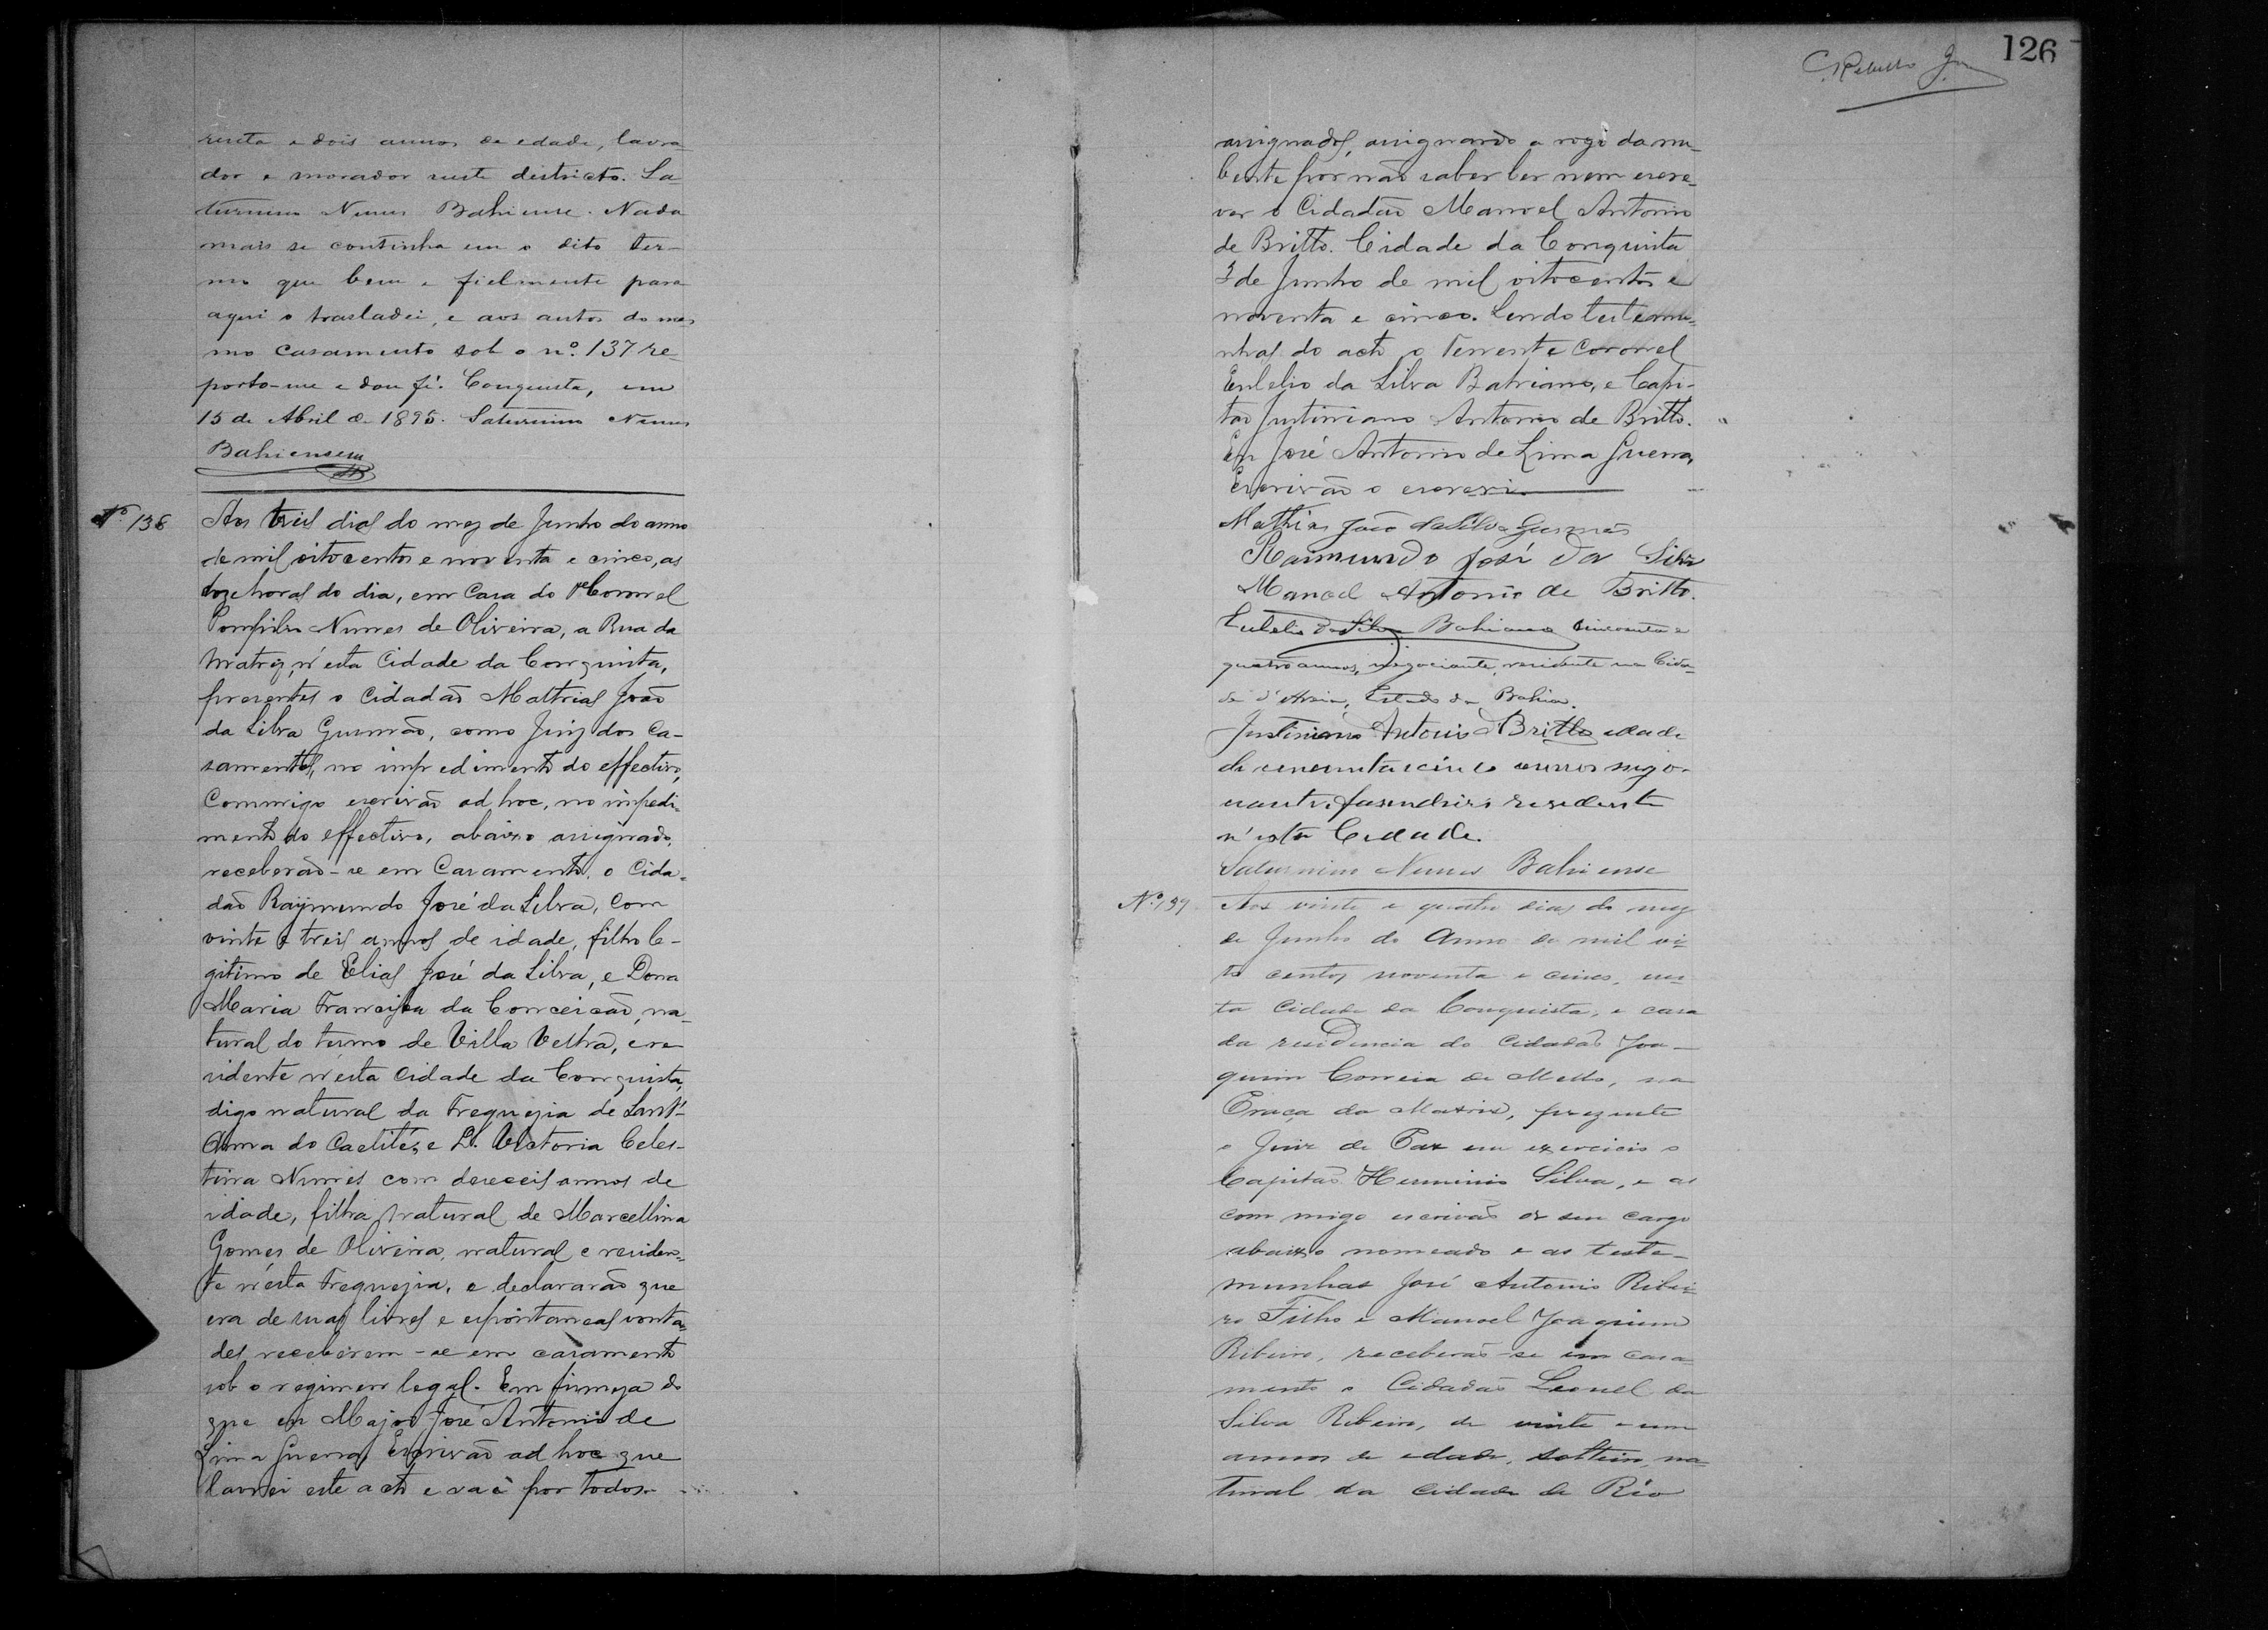 renta e dois annos de edade, lavra-
dor e morador neste districto. Sa-
turnino Nunes Bahiense. Nada
mais se continha em o dito ter-
mo que bem e fielmente para
aqui o trasladei, e aos autos do mes
mo casamento sob o nº. 137 re-
porto-me e dou fé. Conquista, em
15 de Abril de 1895. Saturnino Nunes
Bahiense
Nº 138
Aos treis dias do mez de Junho do anno
de mil oitocentos e noventa e cinco, as
doze horas do dia, em Casa do Coronel
Pompilio Nunes de Oliveira, a Rua da
Matriz, n'esta Cidade da Conquista,
presentes o Cidadão Mathias João
da Silva Gusmão, como Juiz dos Ca-
samentos, no impedimento do effectivo,
Commigo escrivão ad hoc, no impedi-
mento do effectivo, abaixo assignado,
receberão-se em Casamento, o Cida-
dão Raymundo José da Silva, com
vinte e treis annos de idade, filho le-
gitimo de Elias José da Silva, e Dona
Maria Francisca da Conceicão, na-
tural do termo de Villa Velha, e re
sidente n'esta Cidade da Conquista,
digo natural da Freguezia de Sant'-
Anna do Caetité, e D. Victoria Celes-
tina Nunes com deseceis annos de
idade, filha natural de Marcellina
Gomes de Oliveira, natural e residen-
te n'esta Freguezia, e declararão que
era de suas livres e espontaneas vonta-
des receberem-se em casamento
sob o regimen legal. Em firmeza do
que eu Major José Antonio de
Lima Guerra, Escrivão ad hoc que
lavrei este acto e vai por todos
126
assignados, assignando a rogo da nu-
bente por não saber ler nem escre-
ver o Cidadão Manoel Antonio
de Britto. Cidade da Conquista
3 de Junho de mil oitocentos e
noventa e cinco. Sendo testemu-
nhas do acto o Tenente Coronel
Eulelio da Silva Bahiano, e Capi-
tão Justiniano Antonio de Britto.
Eu José Antonio de Lima Guerra,
Escrivão o escrevi.
Mathias João da Silva Gusmão
Raimundo José da Silva
Manoel Antonio de Britto.
Eulelio da Silva Bahiano sincoenta e
quatro annos, negociante, residente na Cida-
de d'Areia, Estado da Bahia.
Justiniano Antonio Britto edade
de cincuenta e cinco annos nego-
ciante, fasendeiro residente
n'esta Cidade.
Saturnino Nunes Bahiense
Nº 139
Aos vinte e quatro dias do mez
de Junho do Anno de mil oi-
to centos noventa e cinco, nes
ta Cidade da Conquista, e casa
da residencia do Cidadão Joa-
quim Correia de Mello, na
Praça da Matriz, prezente
o Juiz de Paz em exercicio o
Capitão Herminio Silva, e as
com migo escrivão de seu cargo
abaixo nomeado e as teste-
munhas José Antonio Ribei-
ro Filho e Manoel Joaquim
Ribeiro, receberão-se em casa
mento o Cidadão Leonel da
Silva Ribeiro, de vinte e um
annos de edade, solteiro, na-
tural da cidade de Rio